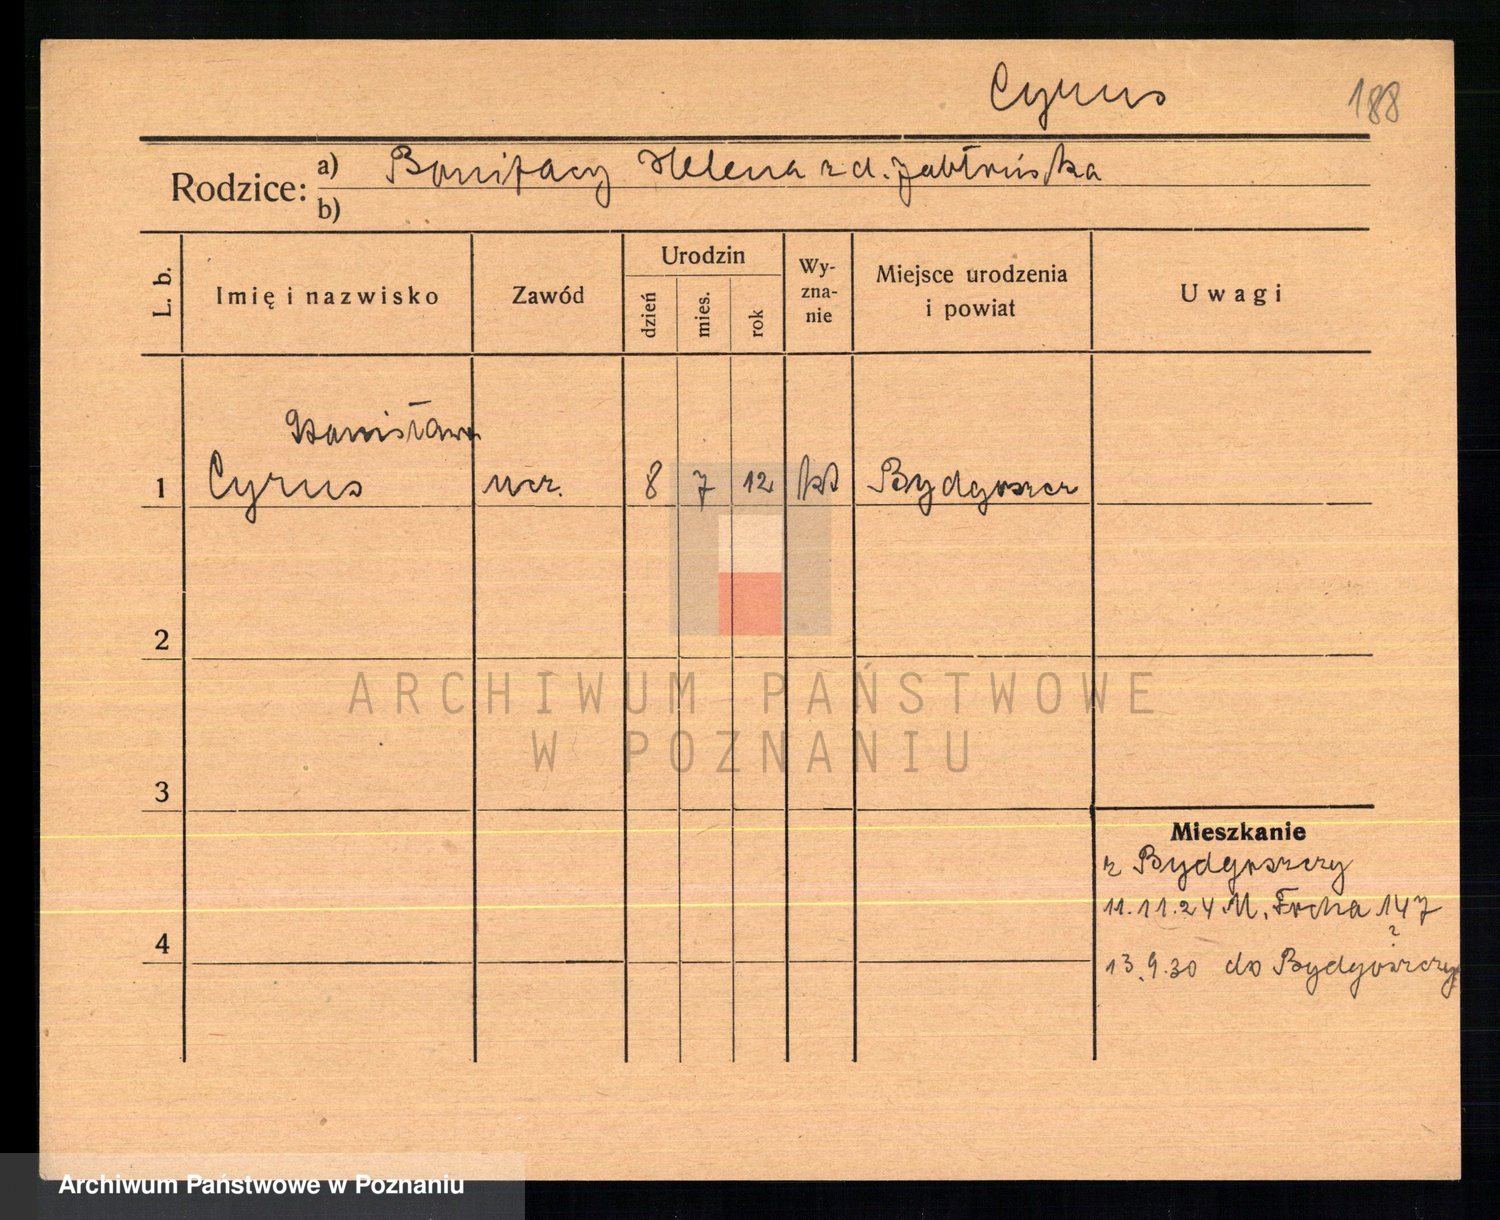 Cyrus 188
Rodzice: a) Bonifacy Helena z d. Jabłońska
b)
L. b. Imię i nazwisko Zawód Urodzin dzień mies. rok Wy-zna-nie Miejsce urodzenia i powiat Uwagi
Stanisława
1 Cyrus ucz. 8 7 12 kat Bydgoszcz
2
3
4
Mieszkanie
z Bydgoszczy
11.11.24 M. Focha 147
?
13.9.30 do Bydgoszczy
ARCHIWUM PAŃSTWOWE
W POZNANIU
Archiwum Państwowe w Poznaniu